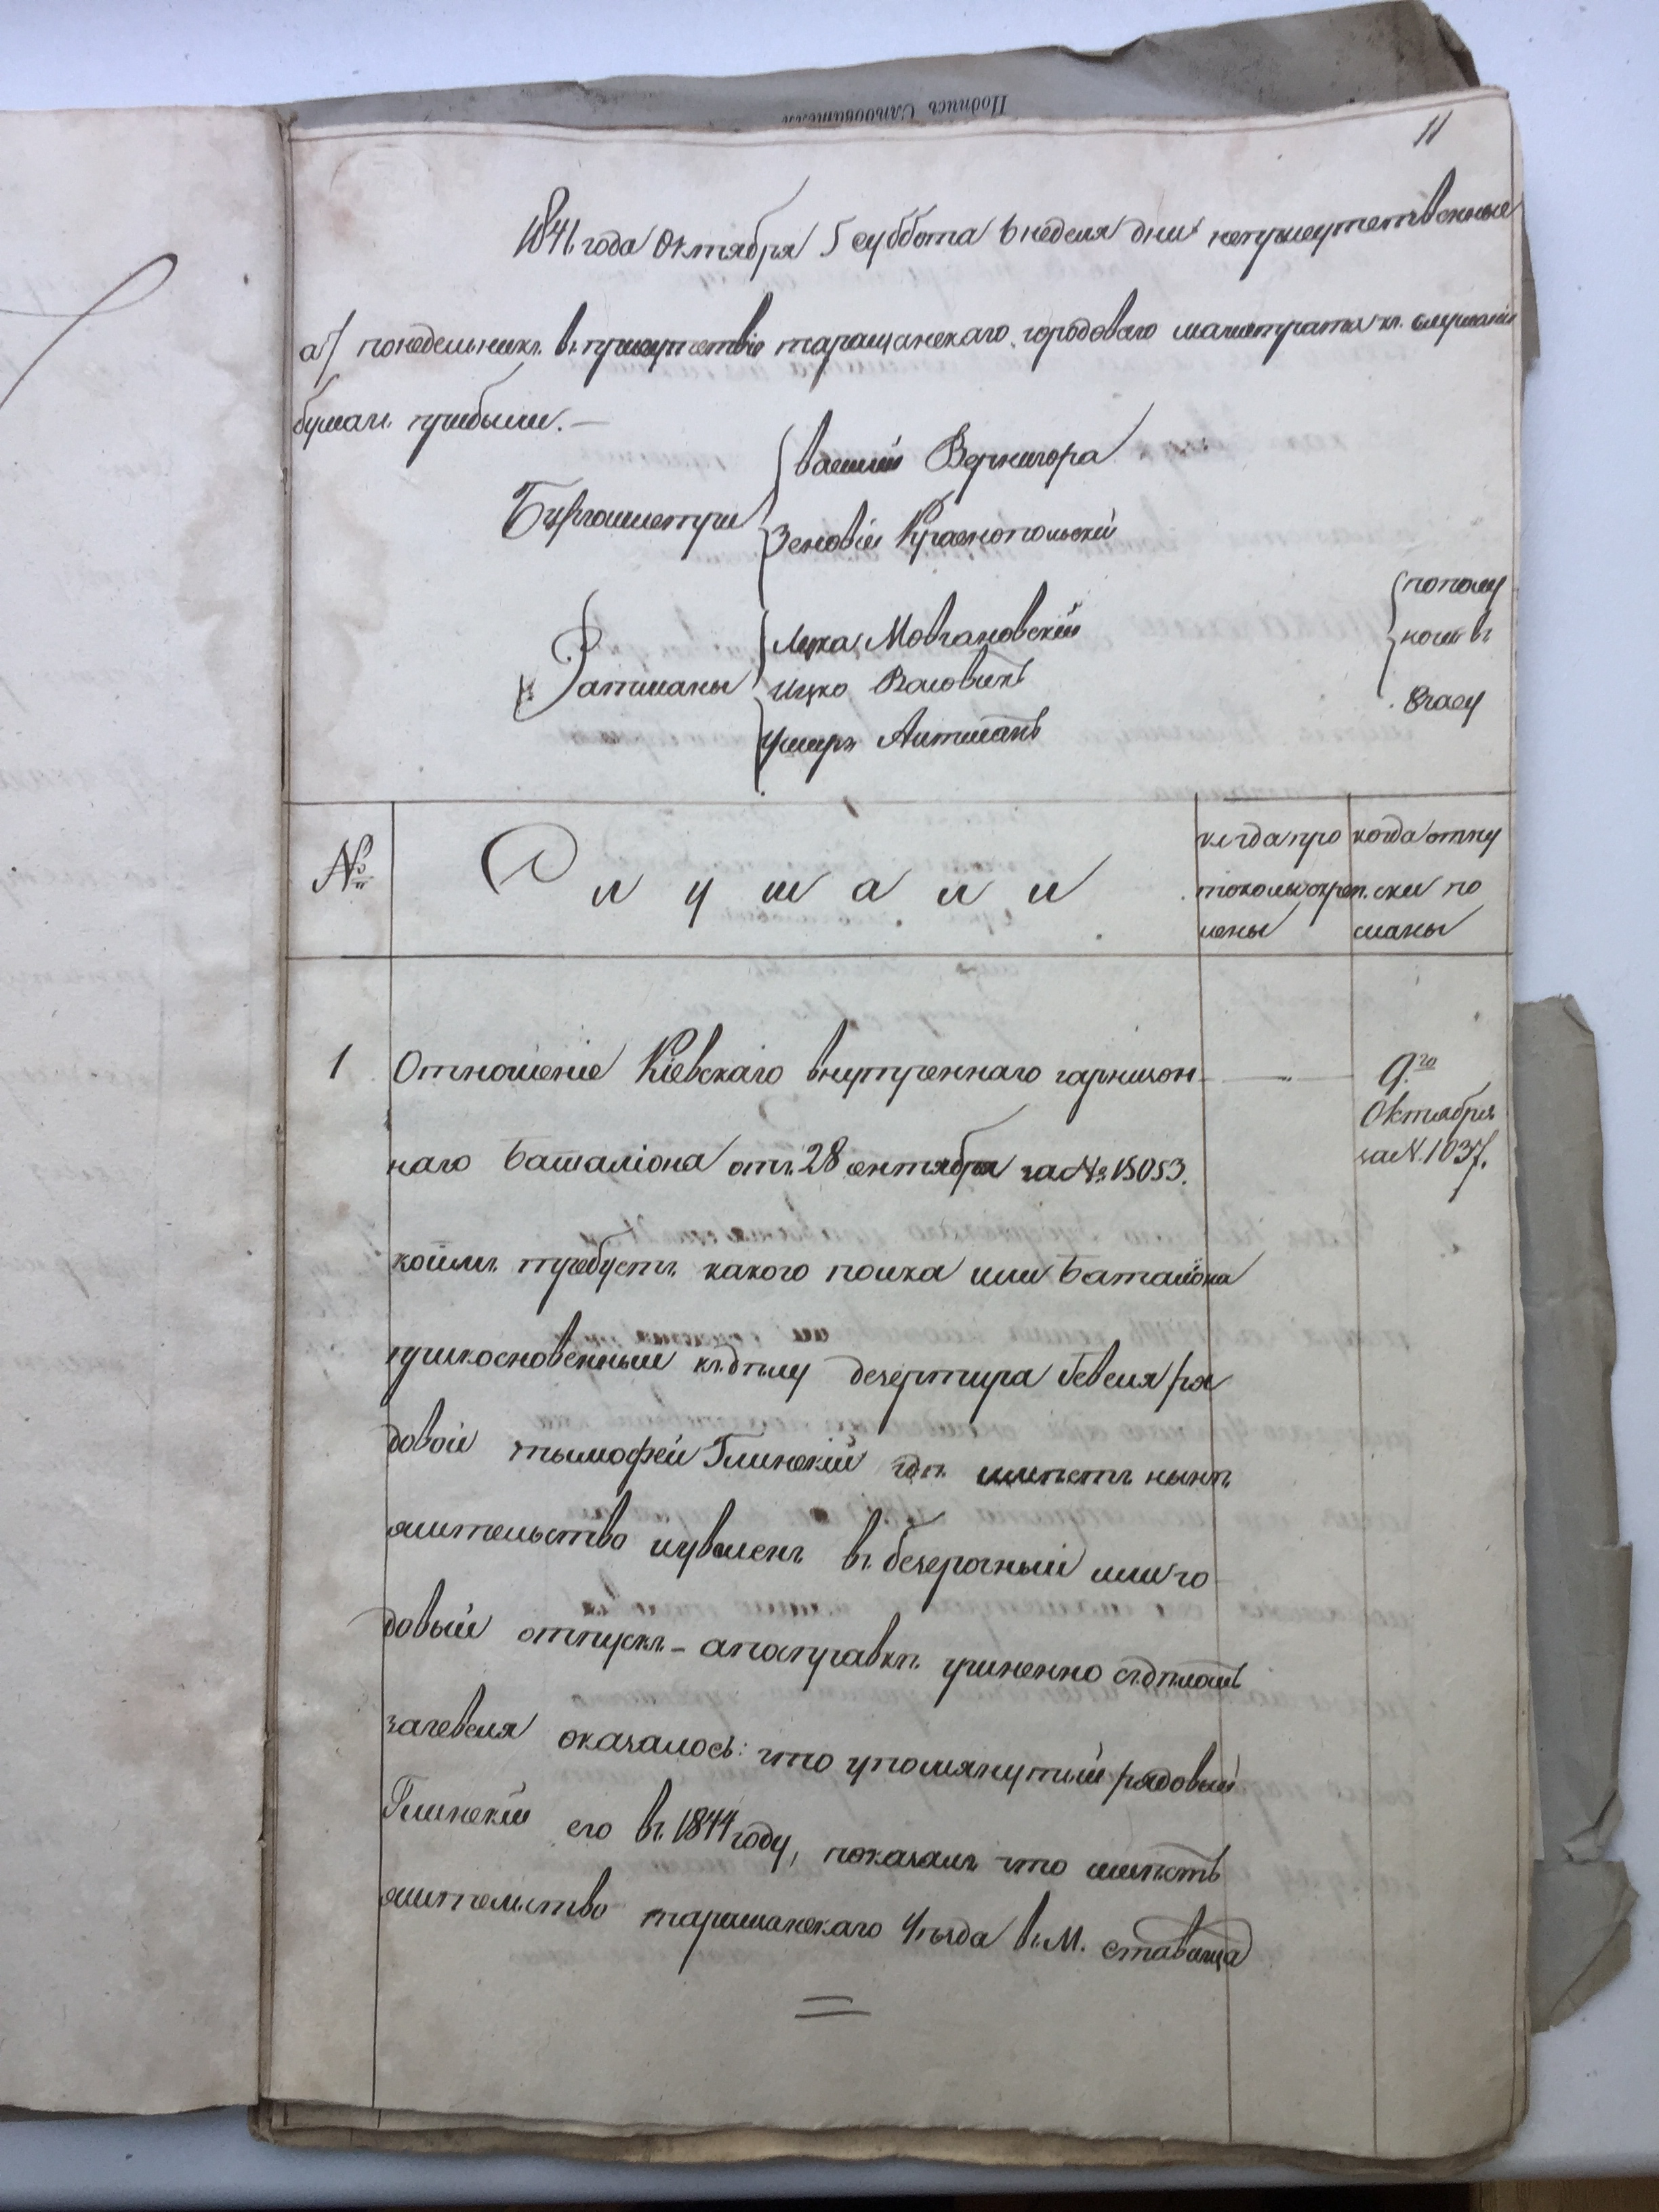 Подпись Слѣдователя
11
1841 года Октября 5 суббота 6 неделя дни неприсутственные
а 7 понедельникъ въ присутствіе таращанскаго городоваго магистрата къ слушанію
бумагъ прибыли. —
Бургомистры
Василий Вернигора
Зеновій Краснопольскій
и Ратманы
Лука Мовчановскій
Ицко
Умеръ
пополу
ночи въ
8 часу
№
Слушали
когда про
токолы скреп
лены
когда отпу
ски по
сланы
1
Отношеніе Кіевскаго внутреннаго гарнизон
наго Баталіона отъ 28 сентября за № 15053.
коимъ требуетъ какого полка или Баталіона
прикосновенный къ дѣлу дезертира Гевеля ря
довой тымофей Глинскій гдѣ имѣетъ нынѣ
жительство и уволенъ въ безсрочный или го
довый отпускъ – а по справкѣ учиненно съ дѣломъ
за Гевеля оказалось: что упомянутый рядовый
Глинскій его въ 1844 году, показалъ что имѣетъ
жителство таращанскаго Уѣзда въ М. ставища
9го
Октября
за N. 1037.